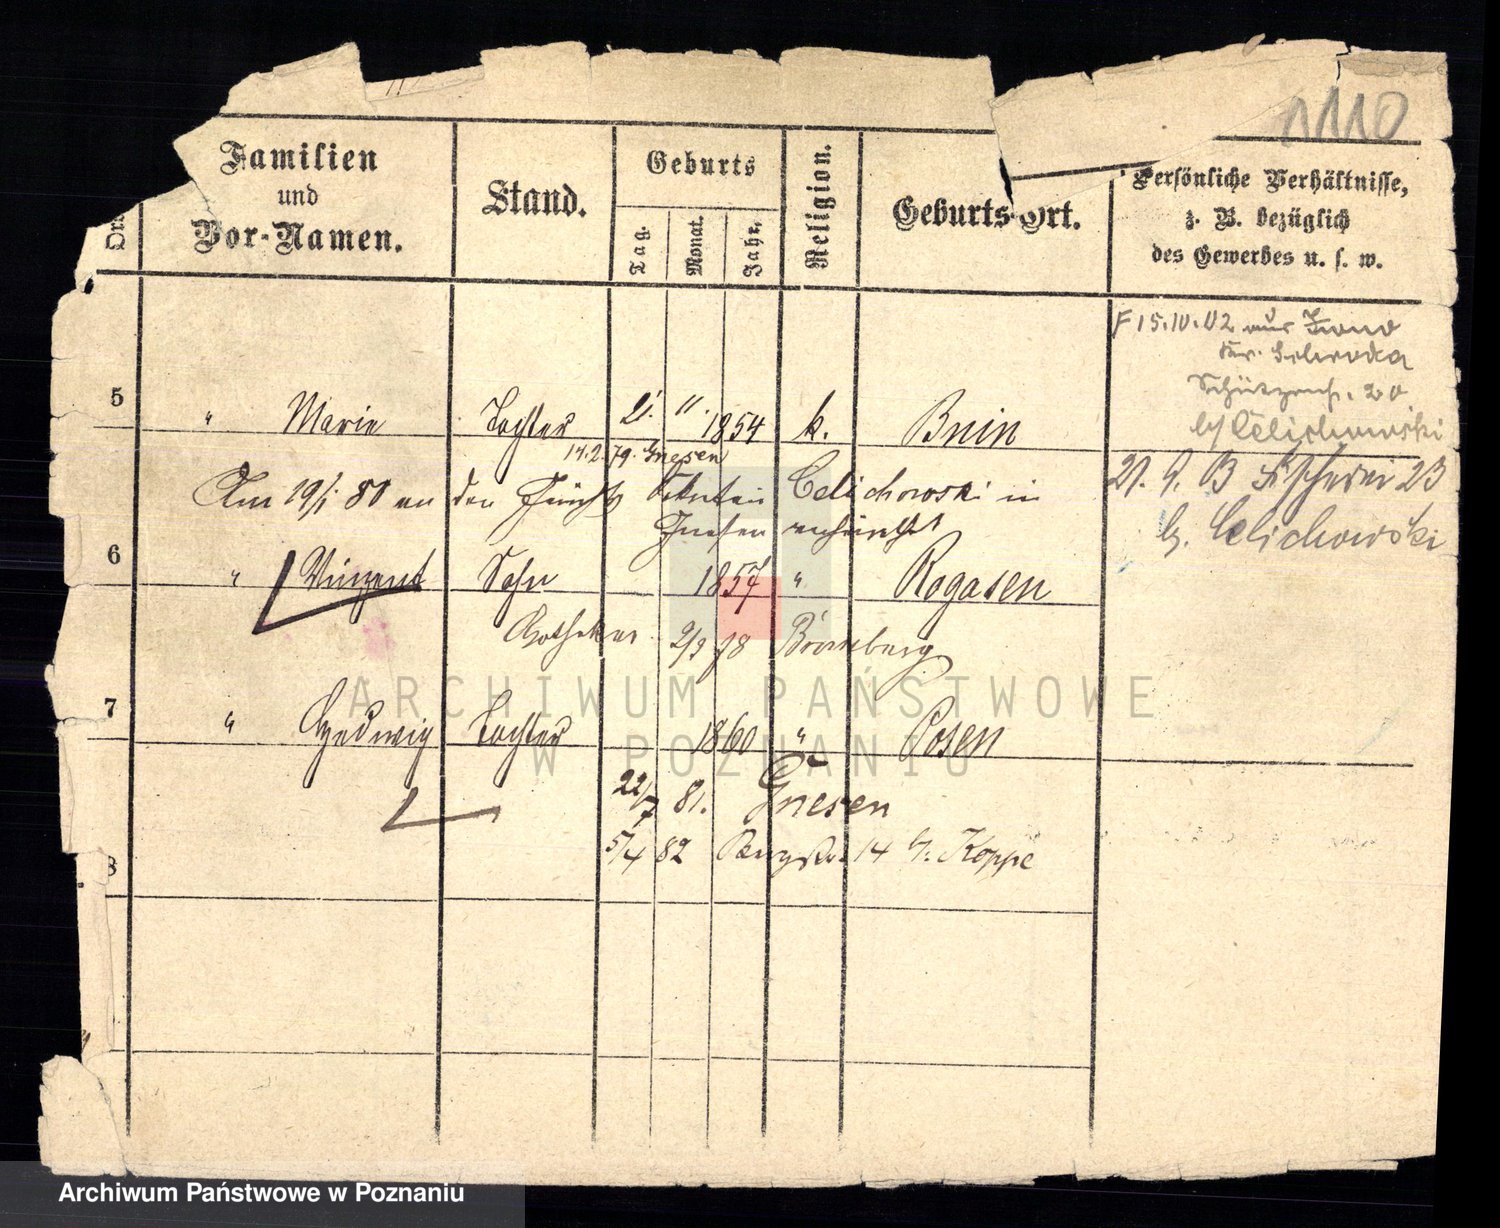 1110
Familien
und
Vor-Namen.
Stand.
Geburts
Tag.
Monat.
Jahr.
Religion.
Geburts-Ort.
Persönliche Verhältnisse,
z. B. bezüglich
des Gewerbes u. s. w.
F 15.10.02 aus
Schroda
20
b/ Celichowski
5 " Marie Tochter 21. 11. 1854 k. Bnin
14.2.79. Gnesen
Am 19/1 80 an den Celichowski in
Gnesen verheirathet
23
b. Celichowski
6 " Vinzent Sohn 1857 " Rogasen
Apotheker 2/9 78 Bromberg
7 " Hedwig Tochter 1860 " Posen
22/7 81. Gnesen
5/4 82 Bergstr. 14 b. Koppe
8
ARCHIWUM PAŃSTWOWE
W POZNANIU
Archiwum Państwowe w Poznaniu